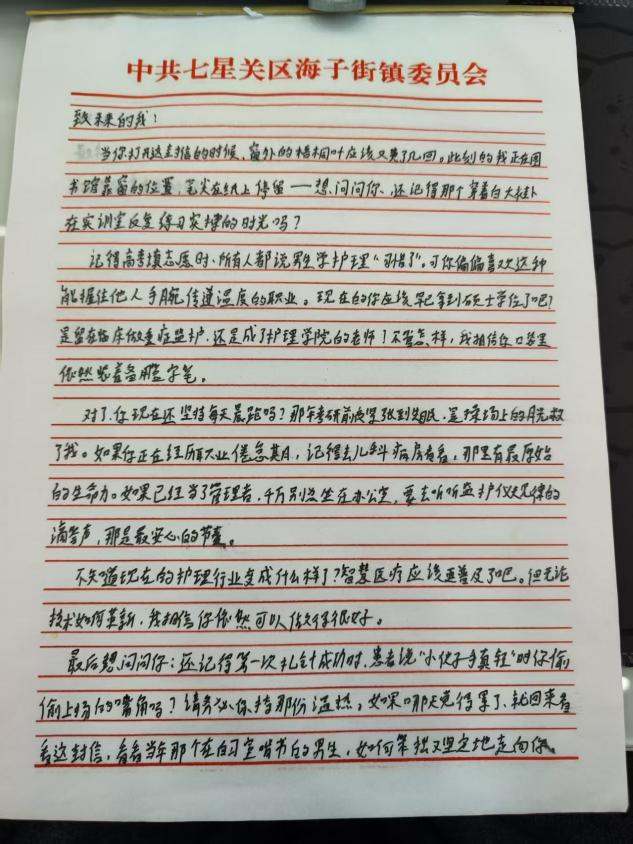 中共七星关区海子街镇委员会
致未来的我：
当你打开这封信的时候，窗外的梧桐叶应该又黄了几回。此刻的我正在图
书馆靠窗的位置，笔尖在纸上停留——想问问你，还记得那个穿着白大褂
在实训室反复练习实操的时光吗？
记得高考填志愿时，所有人都说男生学护理“可惜了”。可你偏偏喜欢这种
能握住他人手腕传递温度的职业。现在的你应该早已拿到硕士学位了吧？
是留在临床做重症监护，还是成了护理学院的老师？不管怎样，我相信你口袋里
依然装着备用签字笔。
对了，你现在还坚持每天晨跑吗？那年考研前夜紧张到失眠，是操场上的月光救
了我。如果你正在经历职业倦怠期，记得去儿科病房看看，那里有最原始
的生命力。如果已经当了管理者，千万别总坐在办公室，要去听听监护仪规律的
滴答声，那是最安心的节奏。
不知道现在的护理行业变成什么样了？智慧医疗应该更普及了吧。但无论
技术如何革新，我相信你依然可以做得很好。
最后想问问你：还记得第一次扎针成功时，患者说“小伙子手真轻”时你偷
偷上扬的嘴角吗？请务必保持那份温热，如果哪天觉得累了，就回来看
看这封信，看看当年那个在自习室啃书的男生，如何笨拙又坚定地走向你。